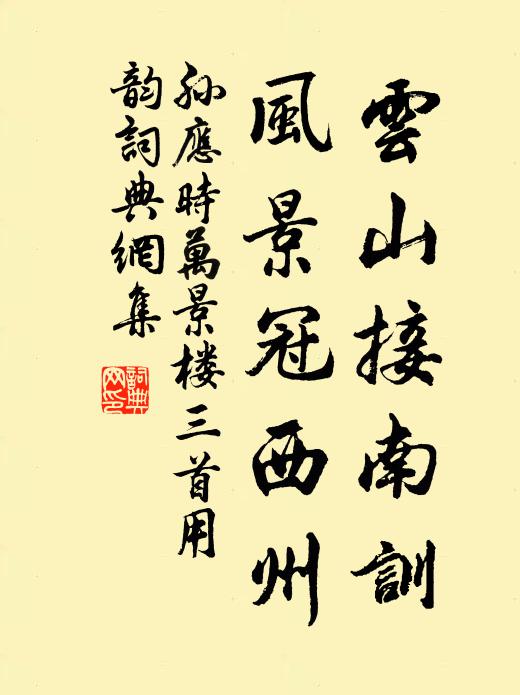 雲山接南訓
風景冠西州
孫應時萬景楼三首用
韵詞典網集
詞典
网印